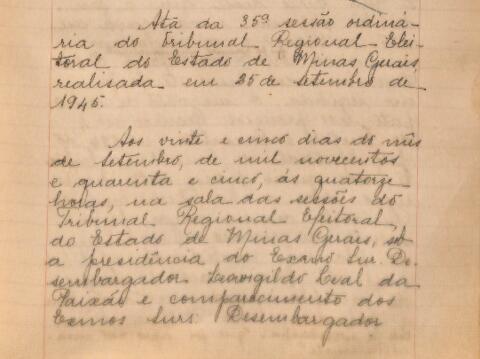 Ata da 35ª sessão ordiná-
ria do Tribunal Regional Elei-
toral do Estado de Minas Gerais,
realisada em 25 de setembro de
1945.
Aos vinte e cinco dias do mês
de setembro, de mil novecentos
e quarenta e cinco, ás quatorze
horas, na sala das sessões do
Tribunal Regional Eleitoral,
do Estado de Minas Gerais, sob
a presidência do Exmo Snr. De-
sembargador Leovigildo Leal da
Paixão e comparecimento dos
Exmos Snrs. Desembargador